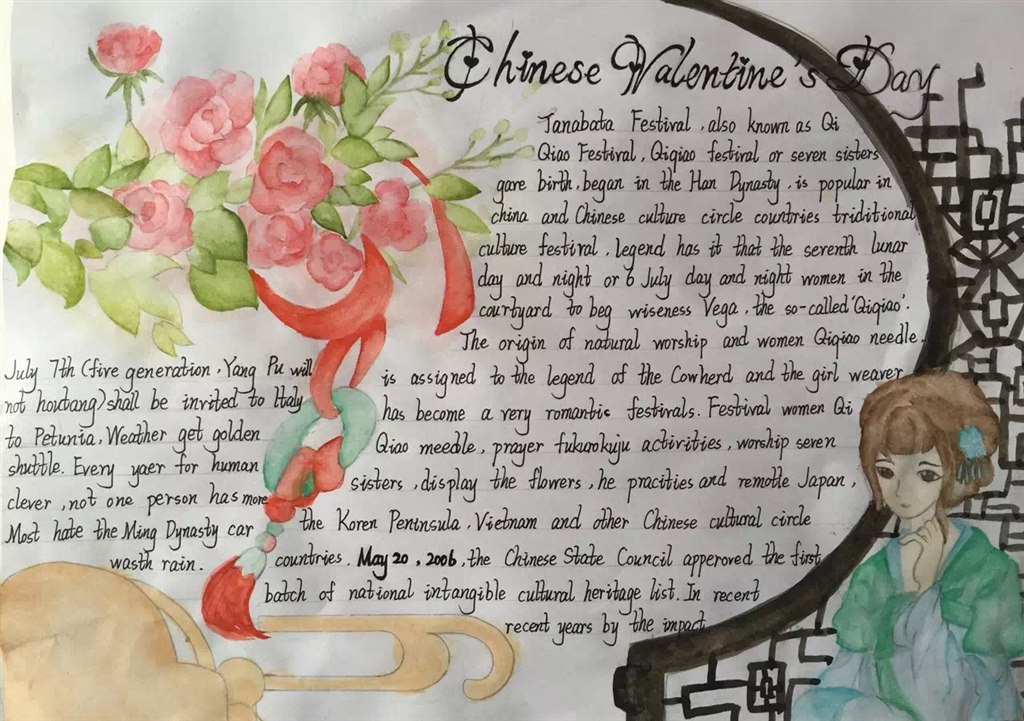 Chinese Valentine's Day
Tanabata Festival, also known as Qi
Qiao Festival, Qiqiao festival or seven sisters
gare birth, began in the Han Dynasty, is popular in
china and Chinese culture circle countries triditional
culture festival, legend has it that the seventh lunar
day and night or 6 July day and night women in the
courtyard to beg wiseness Vega, the so-called 'Qiqiao'.
The origin of natural worship and women Qiqiao needle.
is assigned to the legend of the Cowherd and the girl weaver
has become a very romantic festivals. Festival women Qi
Qiao meedle, prayer fukurokuju activities, worship seven
sisters, display the flowers, he pracities and remotle Japan,
the Koren Peninsula, Vietnam and other Chinese cultural circle
countries. May 20, 2006, the Chinese State Council apperoved the first
batch of national intangible cultural heritage list. In recent
recent years by the impact
July 7th (fire generation, Yang Pu will
not houtang) shall be invited to Italy
to Petunia, Weather get golden
shuttle. Every yaer for human
clever, not one person has more
Most hate the Ming Dynasty car
wasth rain.